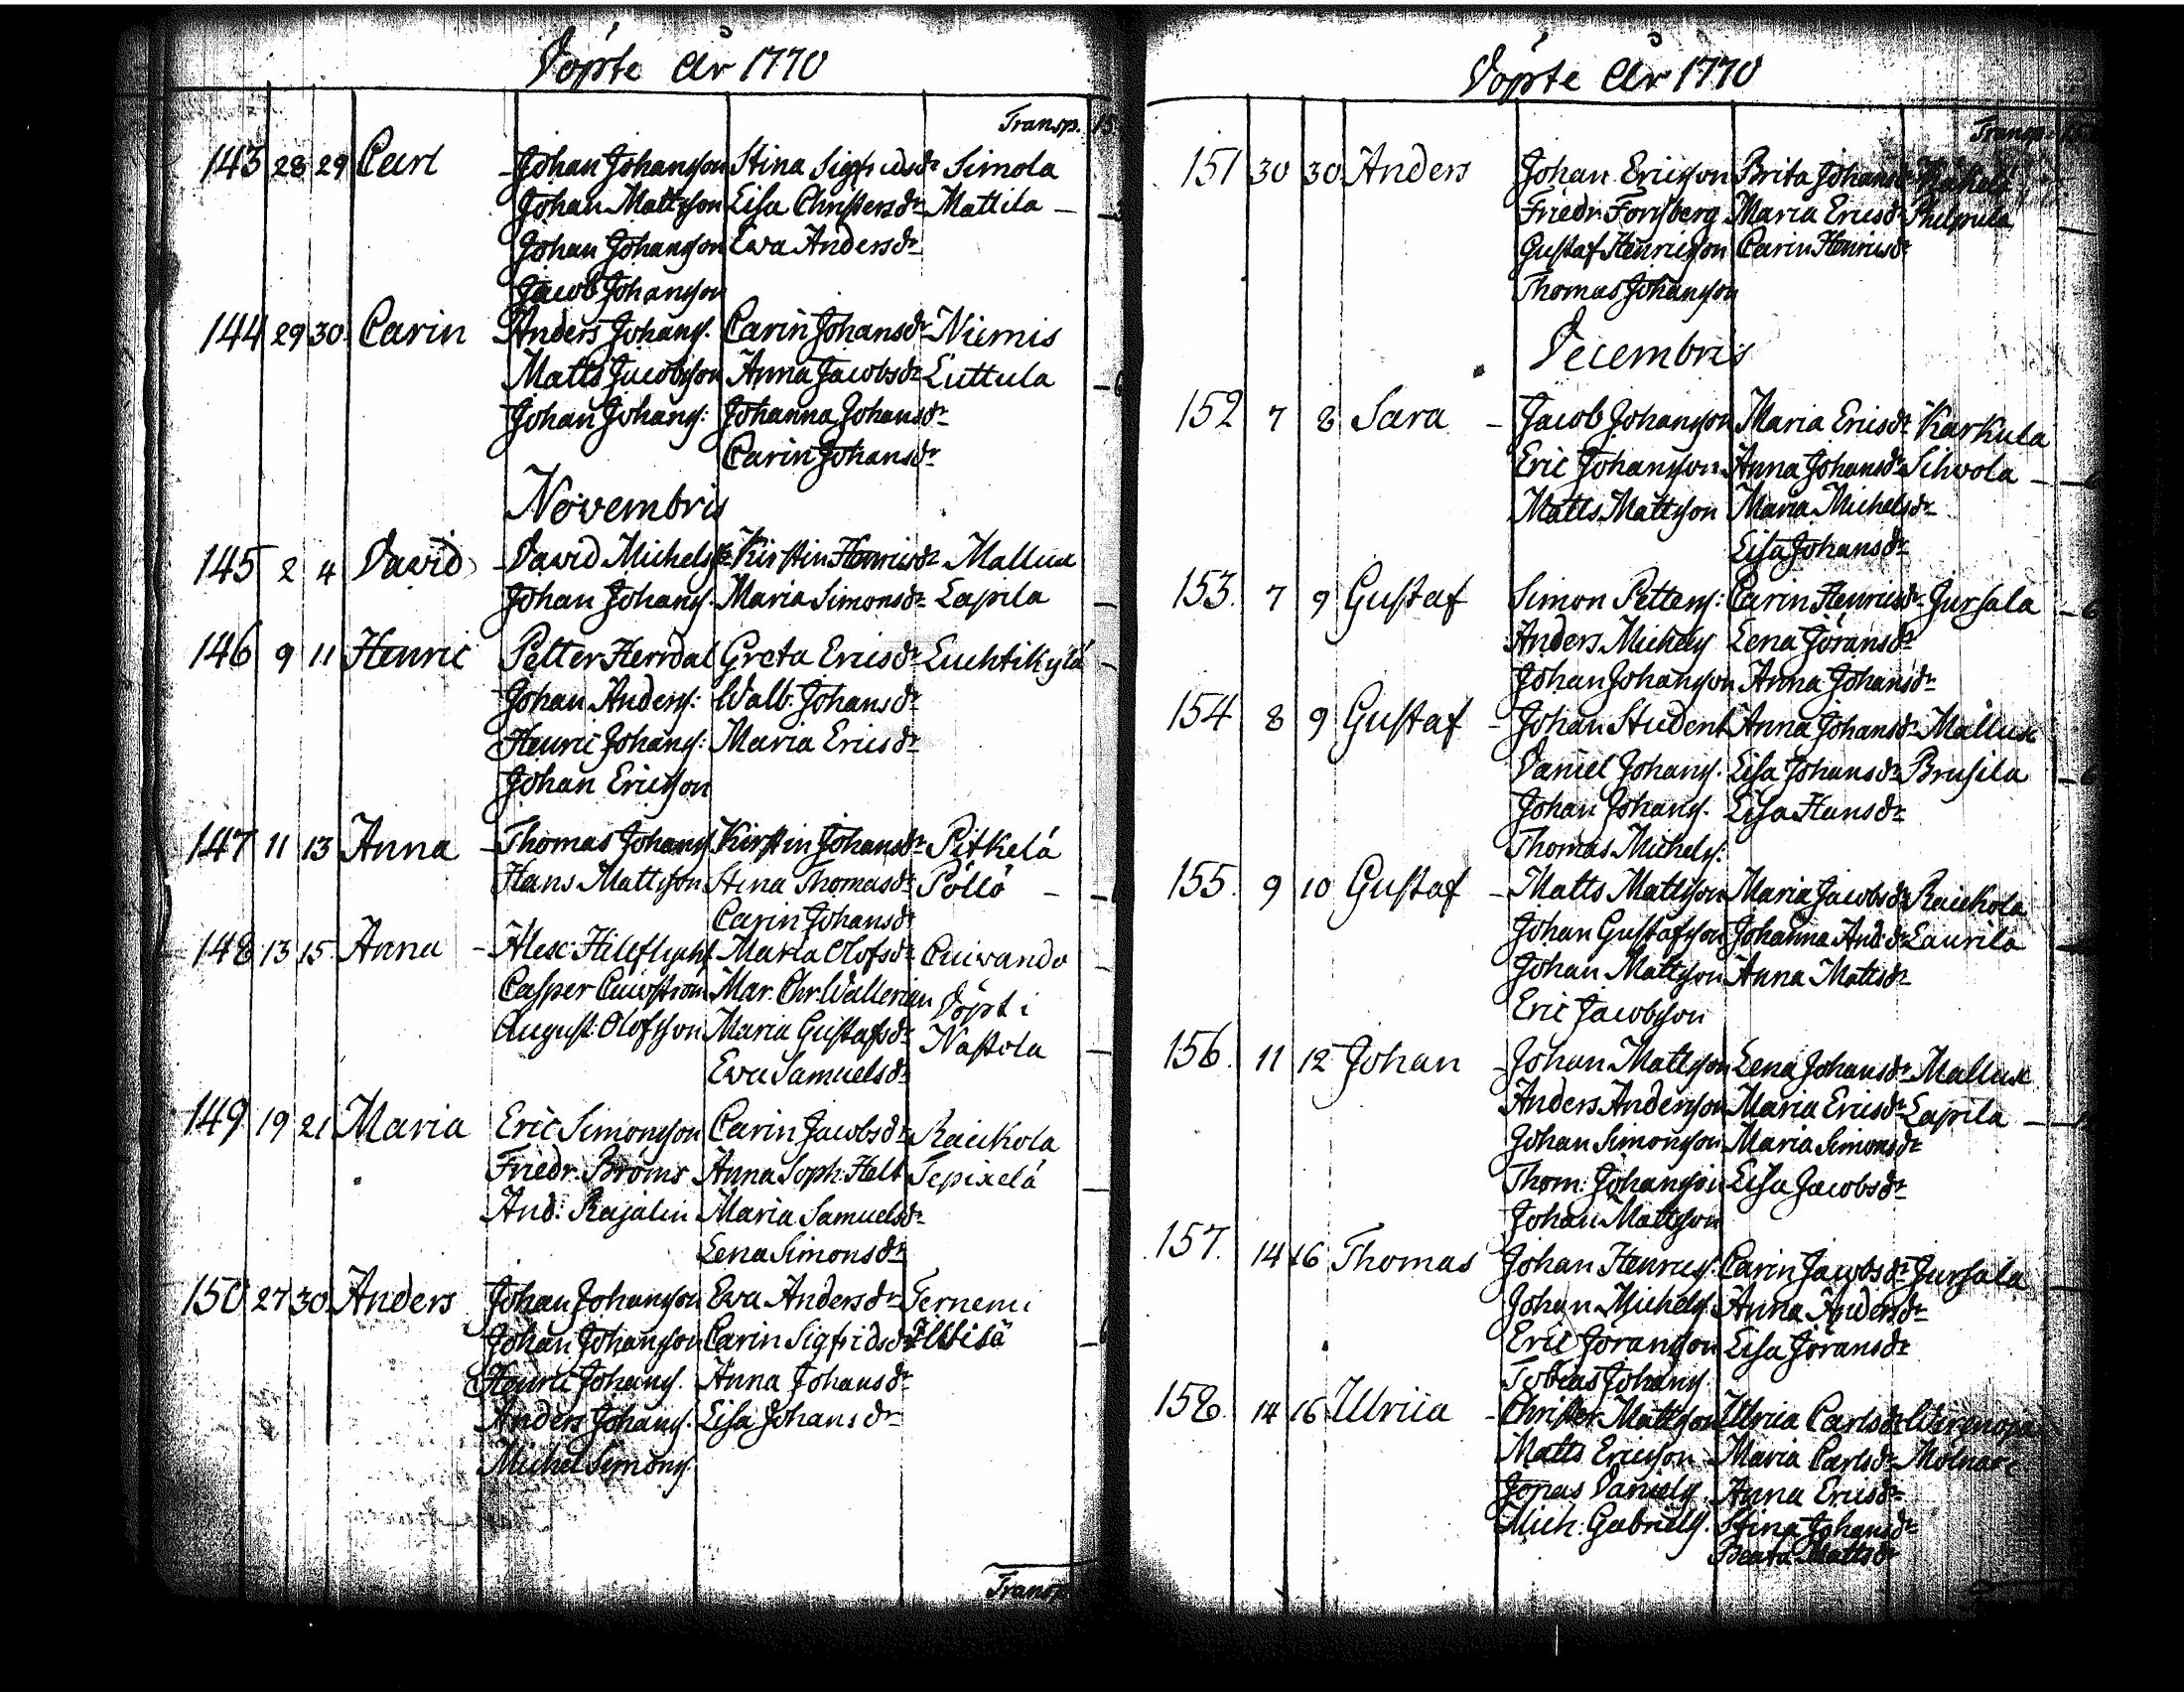 Döpte År 1770
Transp. 15
143 28 29 Carl - Johan Johansson Stina Sigfridsdr Simola
Johan Mattsson Lisa Christersdr Mattila -
Johan Johansson Ewa Andersdr
Jacob Johansson
144 29 30 Carin Anders Johanss. Carin Johansdr Niemis
Matts Jacobsson Anna Jacobsdr Luttula
Johan Johanss: Johanna Johansdr
Carin Johansdr
Novembris
145 2 4 David - David Michelss. Kirstin Henricsdr Mallux
Johan Johanss. Maria Simonsdr Lapila
146 9 11 Henric Petter Herrdal Greta Ericsdr Luchtikylä
Johan Anderss: Walb. Johansdr
Henric Johanss: Maria Ericsdr
Johan Ericsson
147 11 13 Anna - Thomas Johanss Kirstin Johansdr Pitkelä
Hans Mattsson Stina Thomasdr Pöllö -
Carin Johansdr
148 13 15 Anna - Alex: Maria Olofsdr Cuivando
Casper Mar. Chr. Wallerian Döpt i
August: Olofsson Maria Gustafsdr Nastola
Ewa Samuelsdr
149 19 21 Maria Eric Simonsson Carin Jacobsdr Raickola
Friedr. Broms Anna Soph. Helt Sepixelä
And: Rajalin Maria Samuelsdr
Lena Simonsdr
150 27 30 Anders Johan Johansson Ewa Andersdr Ternemi
Johan Johansson Carin Sigfridsdr
Henric Johanss. Anna Johansdr
Anders Johanss. Lisa Johansdr
Michel Simonss.
Transp.
Döpte År 1770
Transp.
151 30 30 Anders Johan Ericsson Brita Johansdr
Friedr. Forssberg Maria Ericsdr Philpula
Gustaf Henricsson Carin Henricsdr
Thomas Johansson
Decembris
152 7 8 Sara - Jacob Johansson Maria Ericsdr Karkula
Eric Johansson Anna Johansdr Sihvola - 6
Matts Mattsson Maria Michelsdr
Lisa Johansdr
153. 7 9 Gustaf Simon Petterss: Carin Henricsdr Jursala - 6
Anders Michelss Lena Jöransdr
Johan Johansson Anna Johansdr
154 8 9 Gustaf - Johan Student Anna Johansdr Mallux
Daniel Johanss. Lisa Johansdr Brusila - 6
Johan Johanss. Lisa Hansdr
Thomas Michelss:
155. 9 10 Gustaf - Matts Mattsson Maria Jacobsdr Raickola
Johan Gustafsson Johanna And:dr Laurila
Johan Mattsson Anna Mattsdr
Eric Jacobsson
156. 11 12 Johan - Johan Mattsson Lena Johansdr Mallux
Anders Andersson Maria Ericsdr Lapila -
Johan Simonsson Maria Simonsdr
Thom: Johansson Lisa Jacobsdr
Johan Mattsson
157. 14 16 Thomas Johan Henricss. Carin Jacobsdr Jursala
Johan Michelss. Anna Andersdr
Eric Joransson Lisa Jöransdr
Tobias Johanss.
158. 14 16 Ulrica - Christer Mattsson Ulrica Carlsdr
Matts Ericsson Maria Carlsdr
Jonas Danielss. Anna Ericsdr
Mich: Gabrielss. Stina Johansdr
Beata Mattsdr